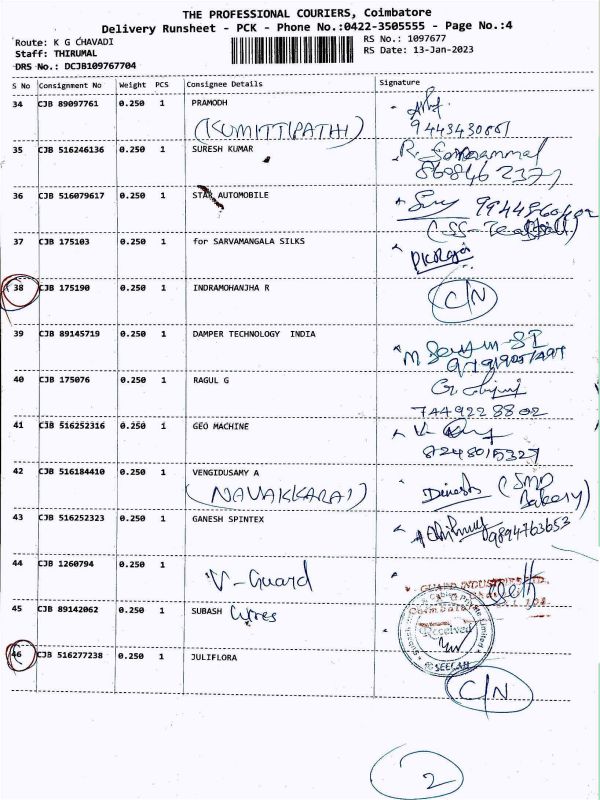 THE PROFESSIONAL COURIERS, Coimbatore
Delivery Runsheet - PCK - Phone No.:0422-3505555 - Page No.:4
Route: K G CHAVADI
RS No.: 1097677
Staff: THIRUMAL
RS Date: 13-Jan-2023
DRS No.: DCJB109767704
S No Consignment No Weight PCS Consignee Details Signature
34 CJB 89097761 0.250 1 PRAMODH
(KUMITTIPATHI)
35 CJB 516246136 0.250 1 SURESH KUMAR
36 CJB 516079617 0.250 1 STAR AUTOMOBILE
37 CJB 175103 0.250 1 for SARVAMANGALA SILKS
38 CJB 175190 0.250 1 INDRAMOHANJHA R C/N
39 CJB 89145719 0.250 1 DAMPER TECHNOLOGY INDIA
40 CJB 175076 0.250 1 RAGUL G
7449228802
41 CJB 516252316 0.250 1 GEO MACHINE
8248015327
42 CJB 516184410 0.250 1 VENGIDUSAMY A
(NAVAKKARAI) Dinesh (SMP Bakery)
43 CJB 516252323 0.250 1 GANESH SPINTEX
9894763653
44 CJB 1260794 0.250 1 V-Guard
45 CJB 89142062 0.250 1 SUBASH
Received
46 CJB 516277238 0.250 1 JULIFLORA
C/N
2